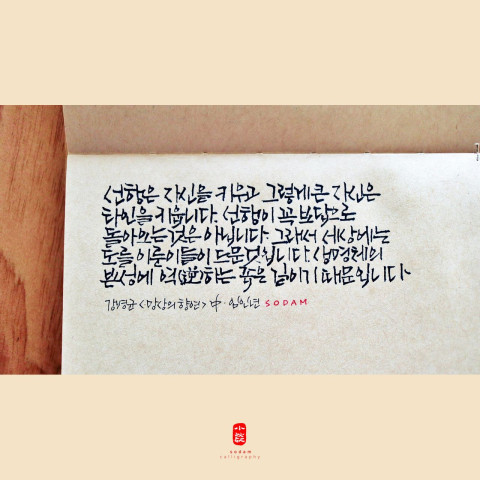 선행은 자신을 키우고 그렇게 큰 자신은
타인을 키웁니다. 선행이 꼭 보답으로
돌아오는 것은 아닙니다. 그래서 세상에는
도를 이룬 이들이 드문 것입니다. 생명체의
본성에 역(逆)하는 좁은 길이기 때문입니다
강병균 <망상의 향연> 中 · 임인년 SODAM
小談
sodam
calligraphy